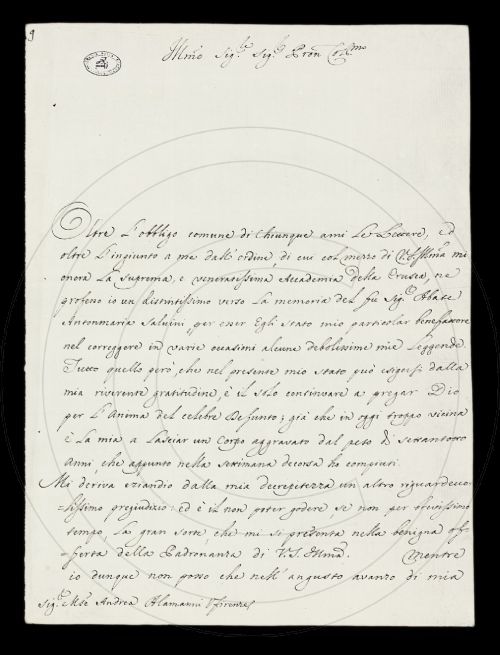 9
Illmo Sig.re Sig.r Pron Colmo
Oltre l'obbligo comune di chiunque ami le Lettere, ed
oltre l'ingiunto a me dall'ordine, di cui col mezo di V.S. Illma mi
onora la suprema, e veneratissima Accademia della Crusca, ne
professo io un distintissimo verso la memoria del fu Sig.r Abate
Antonmaria Salvini, per esser Egli stato mio particolar benefattore
nel correggere in varie occasioni alcune debolissime mie Leggende.
Tutto quello però, che nel presente mio stato può esigersi dalla
mia riverente gratitudine, è il solo continuare a pregar Dio
per l'Anima del celebre Defunto; già che in oggi troppo vicina
è la mia a lasciar un Corpo aggravato dal peso di settantotto
Anni, che appunto nella settimana decorsa ho compiuti.
Mi deriva eziandio dalla mia decrepitezza un altro riguardevo-
lissimo pregiudizio: ed è il non poter godere se non per brevissimo
tempo la gran sorte, che mi si presenta nella benigna of-
ferta della Padronanza di V.S. Illma. Mentre
io dunque non posso che nell'angusto avanzo di mia
Sig.r Mse Andrea Alamanni Firenze